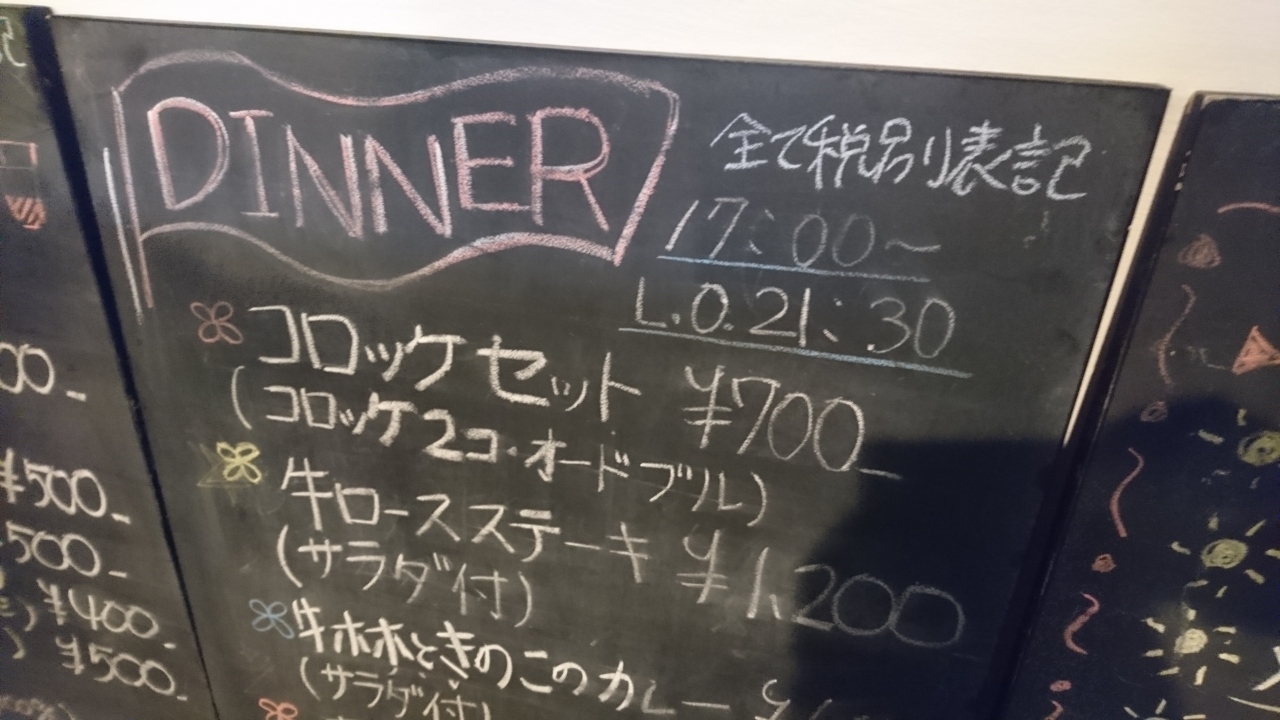 DINNER
全て税別り表記
17:00~
L.O.21:30
コロッケセット ¥700-
(コロッケ2コ・オードブル)
牛ロースステーキ ¥1,200
(サラダ付)
牛ホホときのこのカレー ¥
(サラダ付)
00-
¥500-
500-
¥400-
¥500-